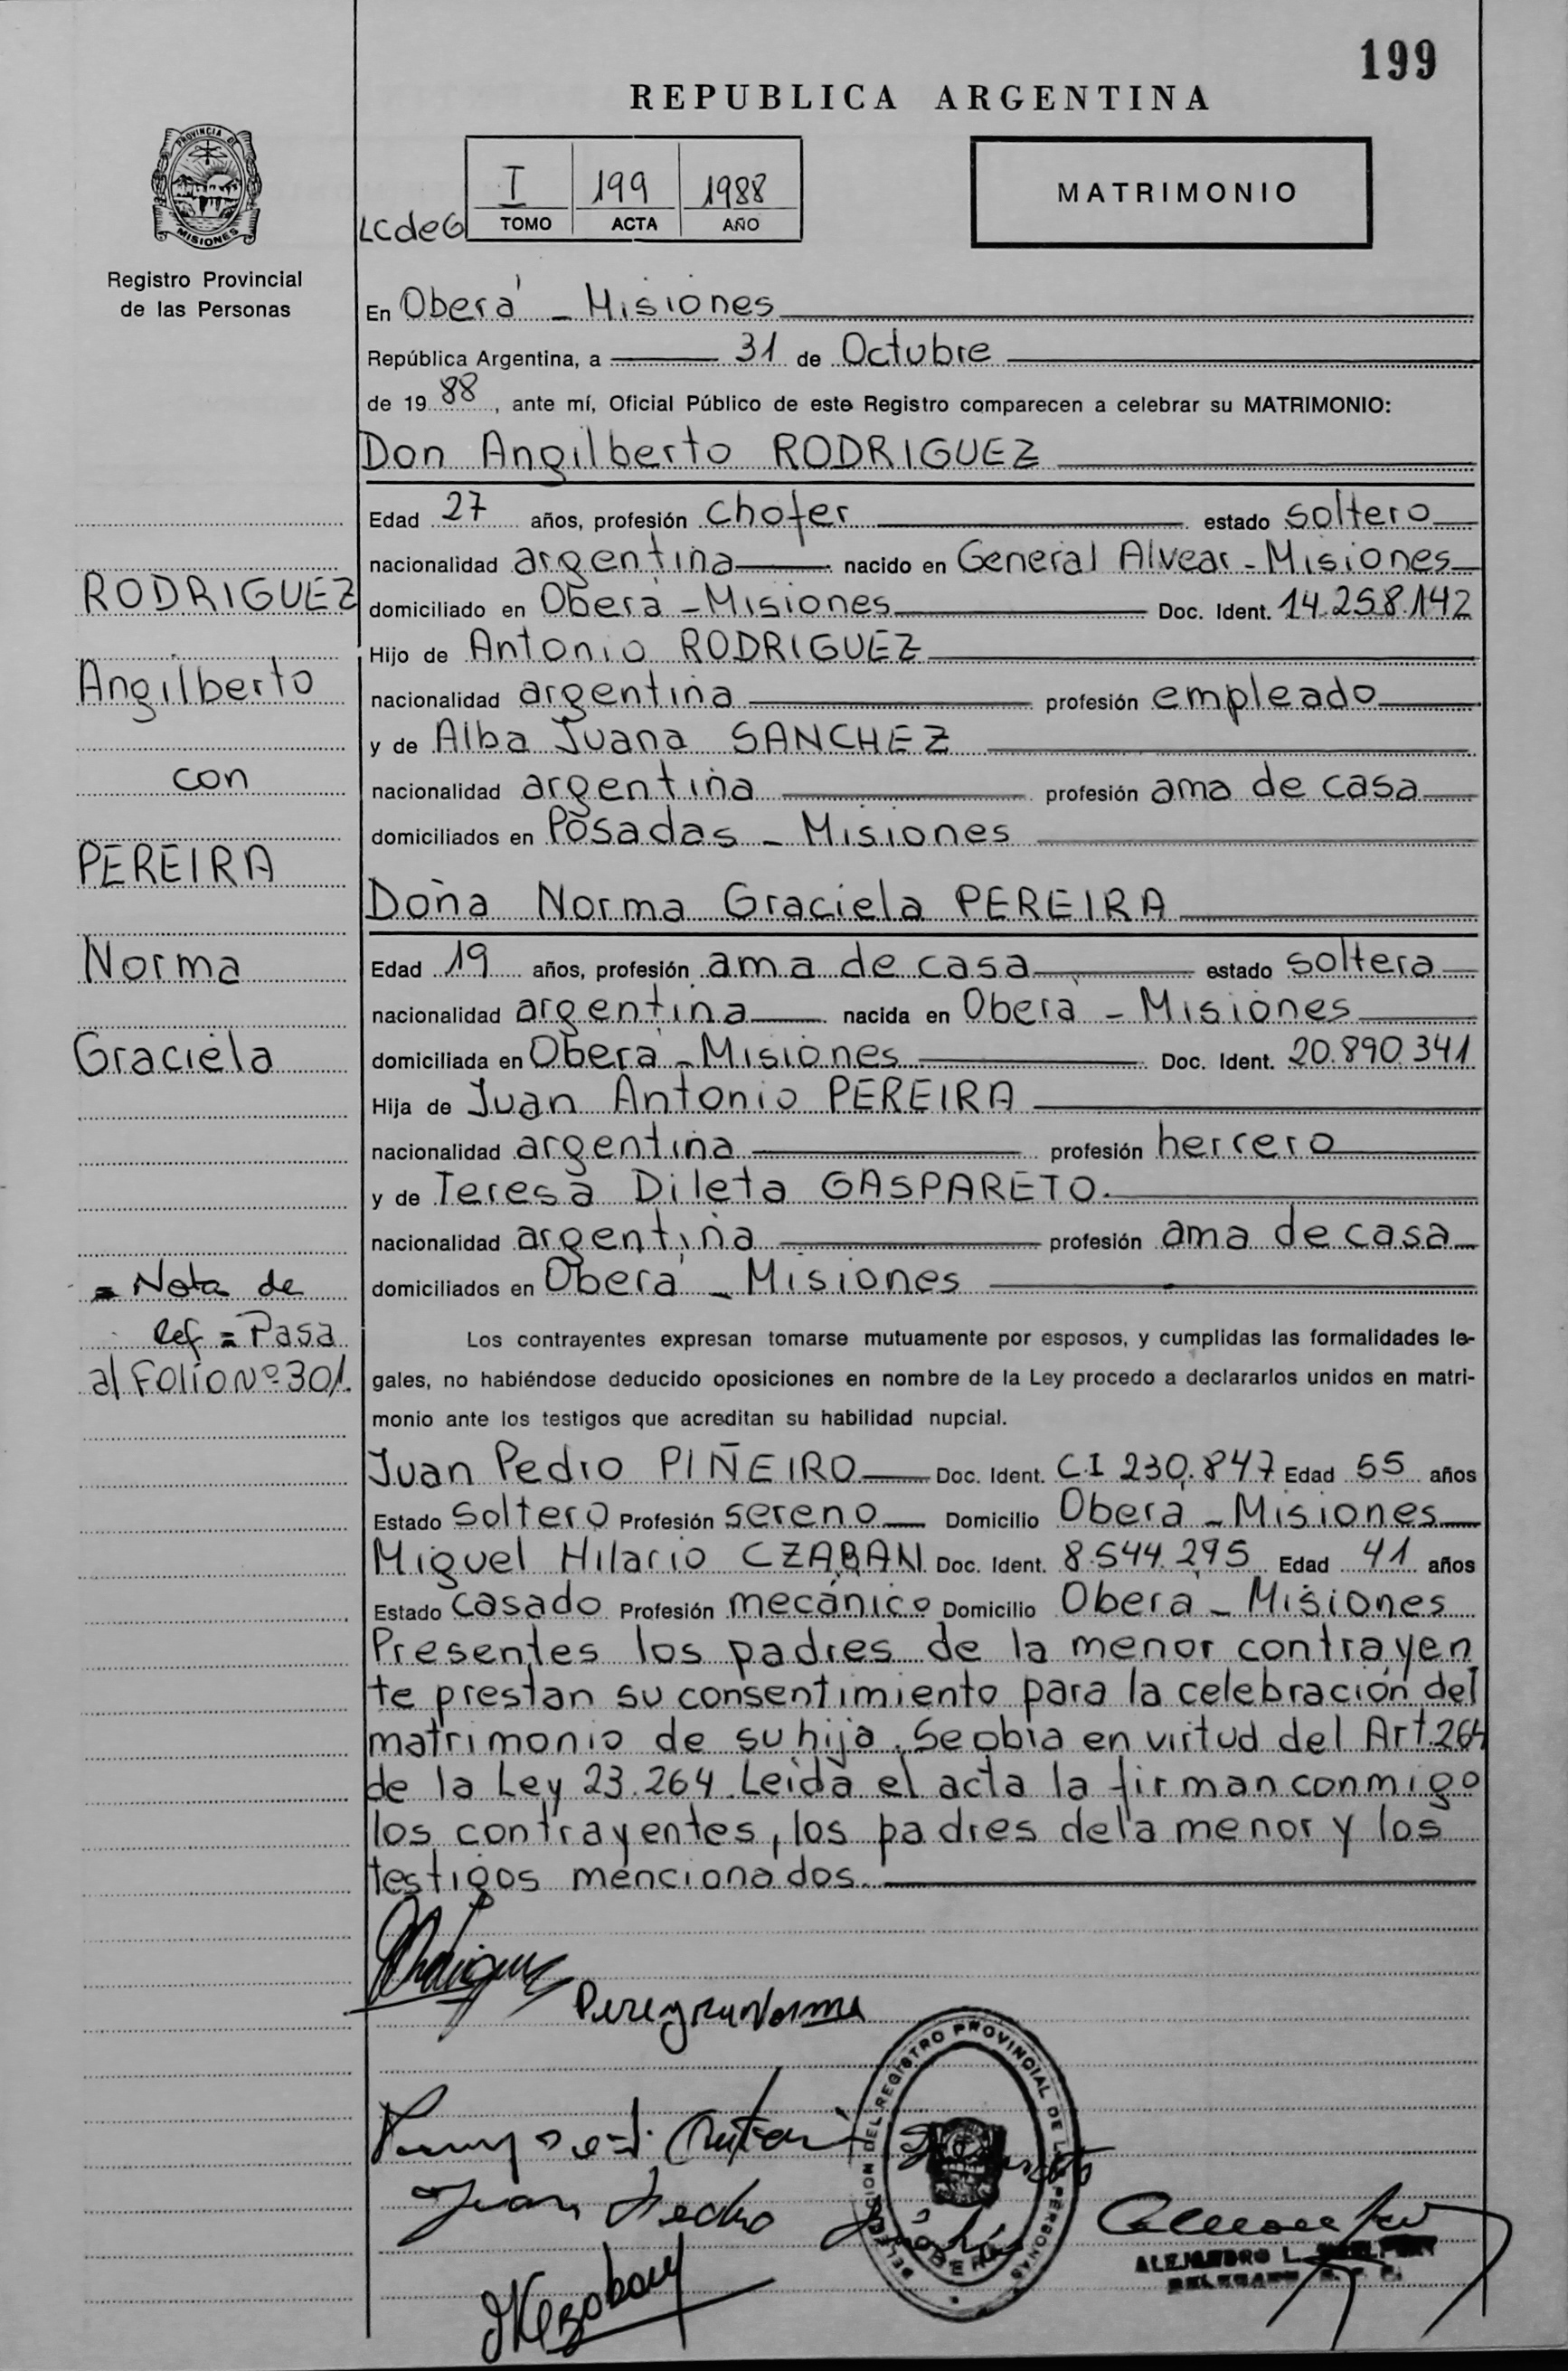 199
REPUBLICA ARGENTINA
PROVINCIA DE
MISIONES
Registro Provincial
de las Personas
LCdeG
I 199 1988
TOMO ACTA AÑO
MATRIMONIO
En Oberá - Misiones
República Argentina, a 31 de Octubre
de 19 88, ante mí, Oficial Público de este Registro comparecen a celebrar su MATRIMONIO:
Don Angilberto RODRIGUEZ
Edad 27 años, profesión chofer estado soltero
nacionalidad argentina nacido en General Alvear - Misiones
domiciliado en Oberá - Misiones Doc. Ident. 14.258.142
Hijo de Antonio RODRIGUEZ
nacionalidad argentina profesión empleado
y de Alba Juana SANCHEZ
nacionalidad argentina profesión ama de casa
domiciliados en Posadas - Misiones
Doña Norma Graciela PEREIRA
Edad 19 años, profesión ama de casa estado soltera
nacionalidad argentina nacida en Oberá - Misiones
domiciliada en Oberá - Misiones Doc. Ident. 20.890.341
Hija de Juan Antonio PEREIRA
nacionalidad argentina profesión herrero
y de Teresa Dileta GASPARETO.
nacionalidad argentina profesión ama de casa
domiciliados en Oberá - Misiones
RODRIGUEZ
Angilberto
con
PEREIRA
Norma
Graciela
= Nota de
Ref = Pasa
al Folio Nº 301.
Los contrayentes expresan tomarse mutuamente por esposos, y cumplidas las formalidades le-
gales, no habiéndose deducido oposiciones en nombre de la Ley procedo a declararlos unidos en matri-
monio ante los testigos que acreditan su habilidad nupcial.
Juan Pedro PIÑEIRO Doc. Ident. C.I 230.847 Edad 55 años
Estado soltero Profesión sereno Domicilio Oberá - Misiones
Miguel Hilario CZABAN Doc. Ident. 8.544.295 Edad 41 años
Estado casado Profesión mecánico Domicilio Oberá - Misiones
Presentes los padres de la menor contrayen
te prestan su consentimiento para la celebración del
matrimonio de su hija. Se obia en virtud del Art.264
de la Ley 23.264. Leida el acta la firman conmigo
los contrayentes, los padres de la menor y los
testigos mencionados.
Norma
Juan Pedro
DELEGACION DEL REGISTRO PROVINCIAL DE LAS PERSONAS
OBERA
ALEJANDRO L.
DELEGADO